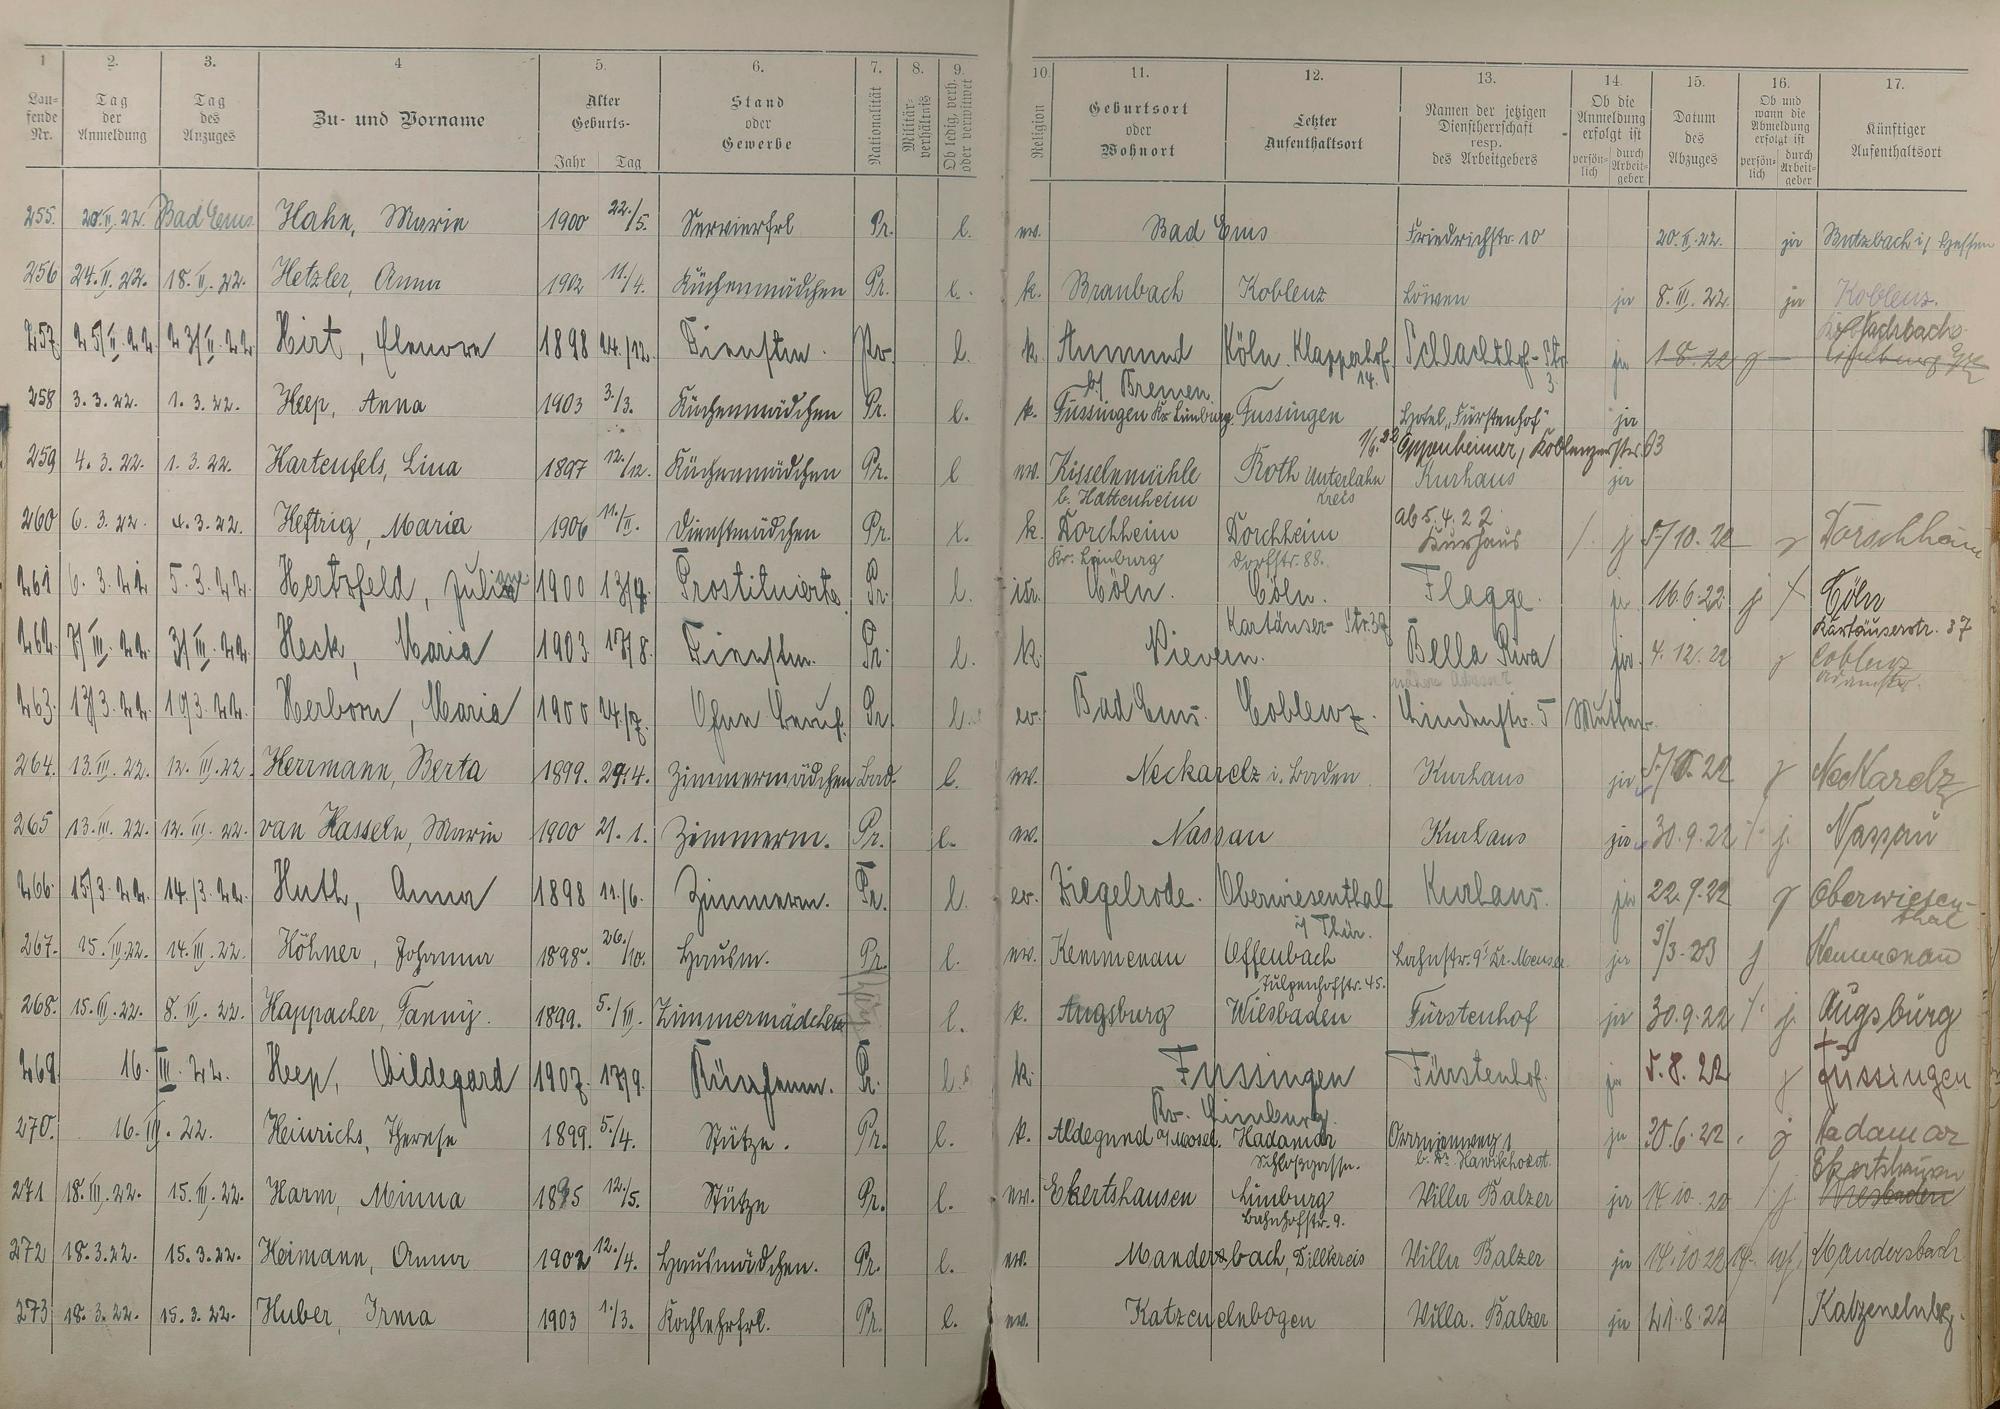 1 2. 3. 4 5. 6. 7. 8. 9. 10. 11. 12. 13. 14. 15. 16. 17.
Laufende Nr. Tag der Anmeldung Tag des Anzuges Zu- und Vorname Alter Geburts- Jahr Tag Stand oder Gewerbe Nationalität Militärverhältnis Ob ledig, verh. oder verwitwet Religion Geburtsort oder Wohnort Letzter Aufenthaltsort Namen der jetzigen Dienstherrschaft resp. des Arbeitgebers Ob die Anmeldung erfolgt ist persönlich durch Arbeitgeber Datum des Abzuges Ob und wann die Abmeldung erfolgt ist persönlich durch Arbeitgeber Künftiger Aufenthaltsort
255. 20.II.22. Bad Ems Hahn, Marie 1900 22./5. Servierfrl Pr. l. ev. Bad Ems Friedrichstr. 10 20.II.22. ja Butzbach i/ Hessen
256 24.II.22. 18.II.22. Hetzler, Anna 1902 11./4. Küchenmädchen Pr. l. k. Braubach Koblenz Löwen ja 8.III.22. ja Koblenz.
257. 25/II.22 23/II.22. Hirt, Elenore 1898 24./12. Dienstm. Pr. l. k. Aumund b/ Bremen. Köln. Klapperhof 14. Schlachthof-Str. 3. ja 1.8.22
258 3.3.22. 1.3.22. Heep, Anna 1903 3./3. Küchenmädchen Pr. l. k. Fussingen Kr. Limburg. Fussingen Hotel „Fürstenhof" ja
1/6.22 Oppenheimer, Koblenzerstr. 63
259 4.3.22. 1.3.22. Hartenfels, Lina 1897 12./12. Küchenmädchen Pr. l ev. Kisselmühle b. Hattenheim Roth Unterlahnkreis Kurhaus ja
260 6.3.22. 4.3.22. Heftrig, Maria 1906 11./II. Dienstmädchen Pr. l. k. Dorchheim Kr. Limburg Dorchheim Dorfstr. 88. ab 5.4.22 Kurhaus / j 5/10.22 j Dorschheim
261 6.3.22 5.3.22. Hertzfeld, Juliane 1900 13/9. Prostituierte Pr. l. isr. Cöln. Cöln. Kartäuser-Str. 37 Flagge. ja 16.6.22 j / Cöln Kartäuserstr. 37
262. 7/III.22. 3/III.22. Heck, Maria 1903 17/8. Dienstm. Pr. l. k. Nievern. Bella Riva ja. 4.12.22 j Coblenz
263. 13/3.22. 10/3.22. Herborn, Maria 1900 24/7. Ohne Beruf. Pr. l. ev. Bad Ems. Coblenz. Lindenstr. 5 Mutter.
264. 13.III.22. 12.III.22. Herrmann, Berta 1899. 29.4. Zimmermädchen Bad. l. ev. Neckarelz i. Baden Kurhaus ja 5/10.22 j Neckarelz
265 13.III.22. 12.III.22. van Hasseln, Marie 1900 21.1. Zimmerm. Pr. l. ev. Nassau Kurhaus ja 30.9.22 / j. Nassau
266. 15/3.22. 14./3.22. Huth, Anna 1898 11./6. Zimmerm. Pr. l. ev. Ziegelrode. Oberwiesenthal i/ Thür. Kurhaus. ja 22.9.22 j Oberwiesenthal
267. 15.III.22. 14.III.22. Höhner, Johanna 1898. 26./10. Hausm. Pr. l. ev. Kemmenau Offenbach Tulpenhofstr. 45. Lahnstr. 9 ja 9/3.23 j Kemmenau
268. 15.III.22. 8.III.22. Happacher, Fanny. 1899. 5./III. Zimmermädchen l. k. Augsburg Wiesbaden Fürstenhof ja 30.9.22 / j. Augsburg
269. 16.III.22. Heep, Hildegard 1907 17/9. Küchenm. Pr. l. k. Fussingen Kr. Limburg. Fürstenhof. ja 5.8.22 j Fussingen
270. 16.III.22. Heinrichs, Therese 1899. 5./4. Stütze. Pr. l. k. Aldegund a/Mosel. Hadamar Schloßgasse. Oranienweg 1 ja 30.6.22 j Hadamar
271 18.III.22. 15.III.22. Harm, Minna 1895 12./5. Stütze Pr. l. ev. Ekertshausen Limburg Bahnhofstr. 9. Villa Balzer ja 14.10.22 / j. Ekertshausen Wiesbaden
272 18.3.22. 15.3.22. Heimann, Anna 1902 12./4. Hausmädchen. Pr. l. ev. Mandersbach, Dillkreis Villa Balzer ja 14.10.22 Mandersbach
273 18.3.22. 15.3.22. Huber, Irma 1903 1./3. Kochlehrfrl. Pr. l. ev. Katzenelnbogen Villa. Balzer ja 21.8.22 Katzenelnbg.